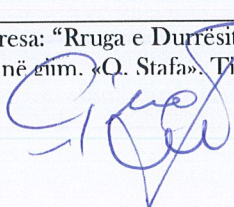 resa: “Rruga e Durrësit
në gjim. «Q. Stafa». Ti